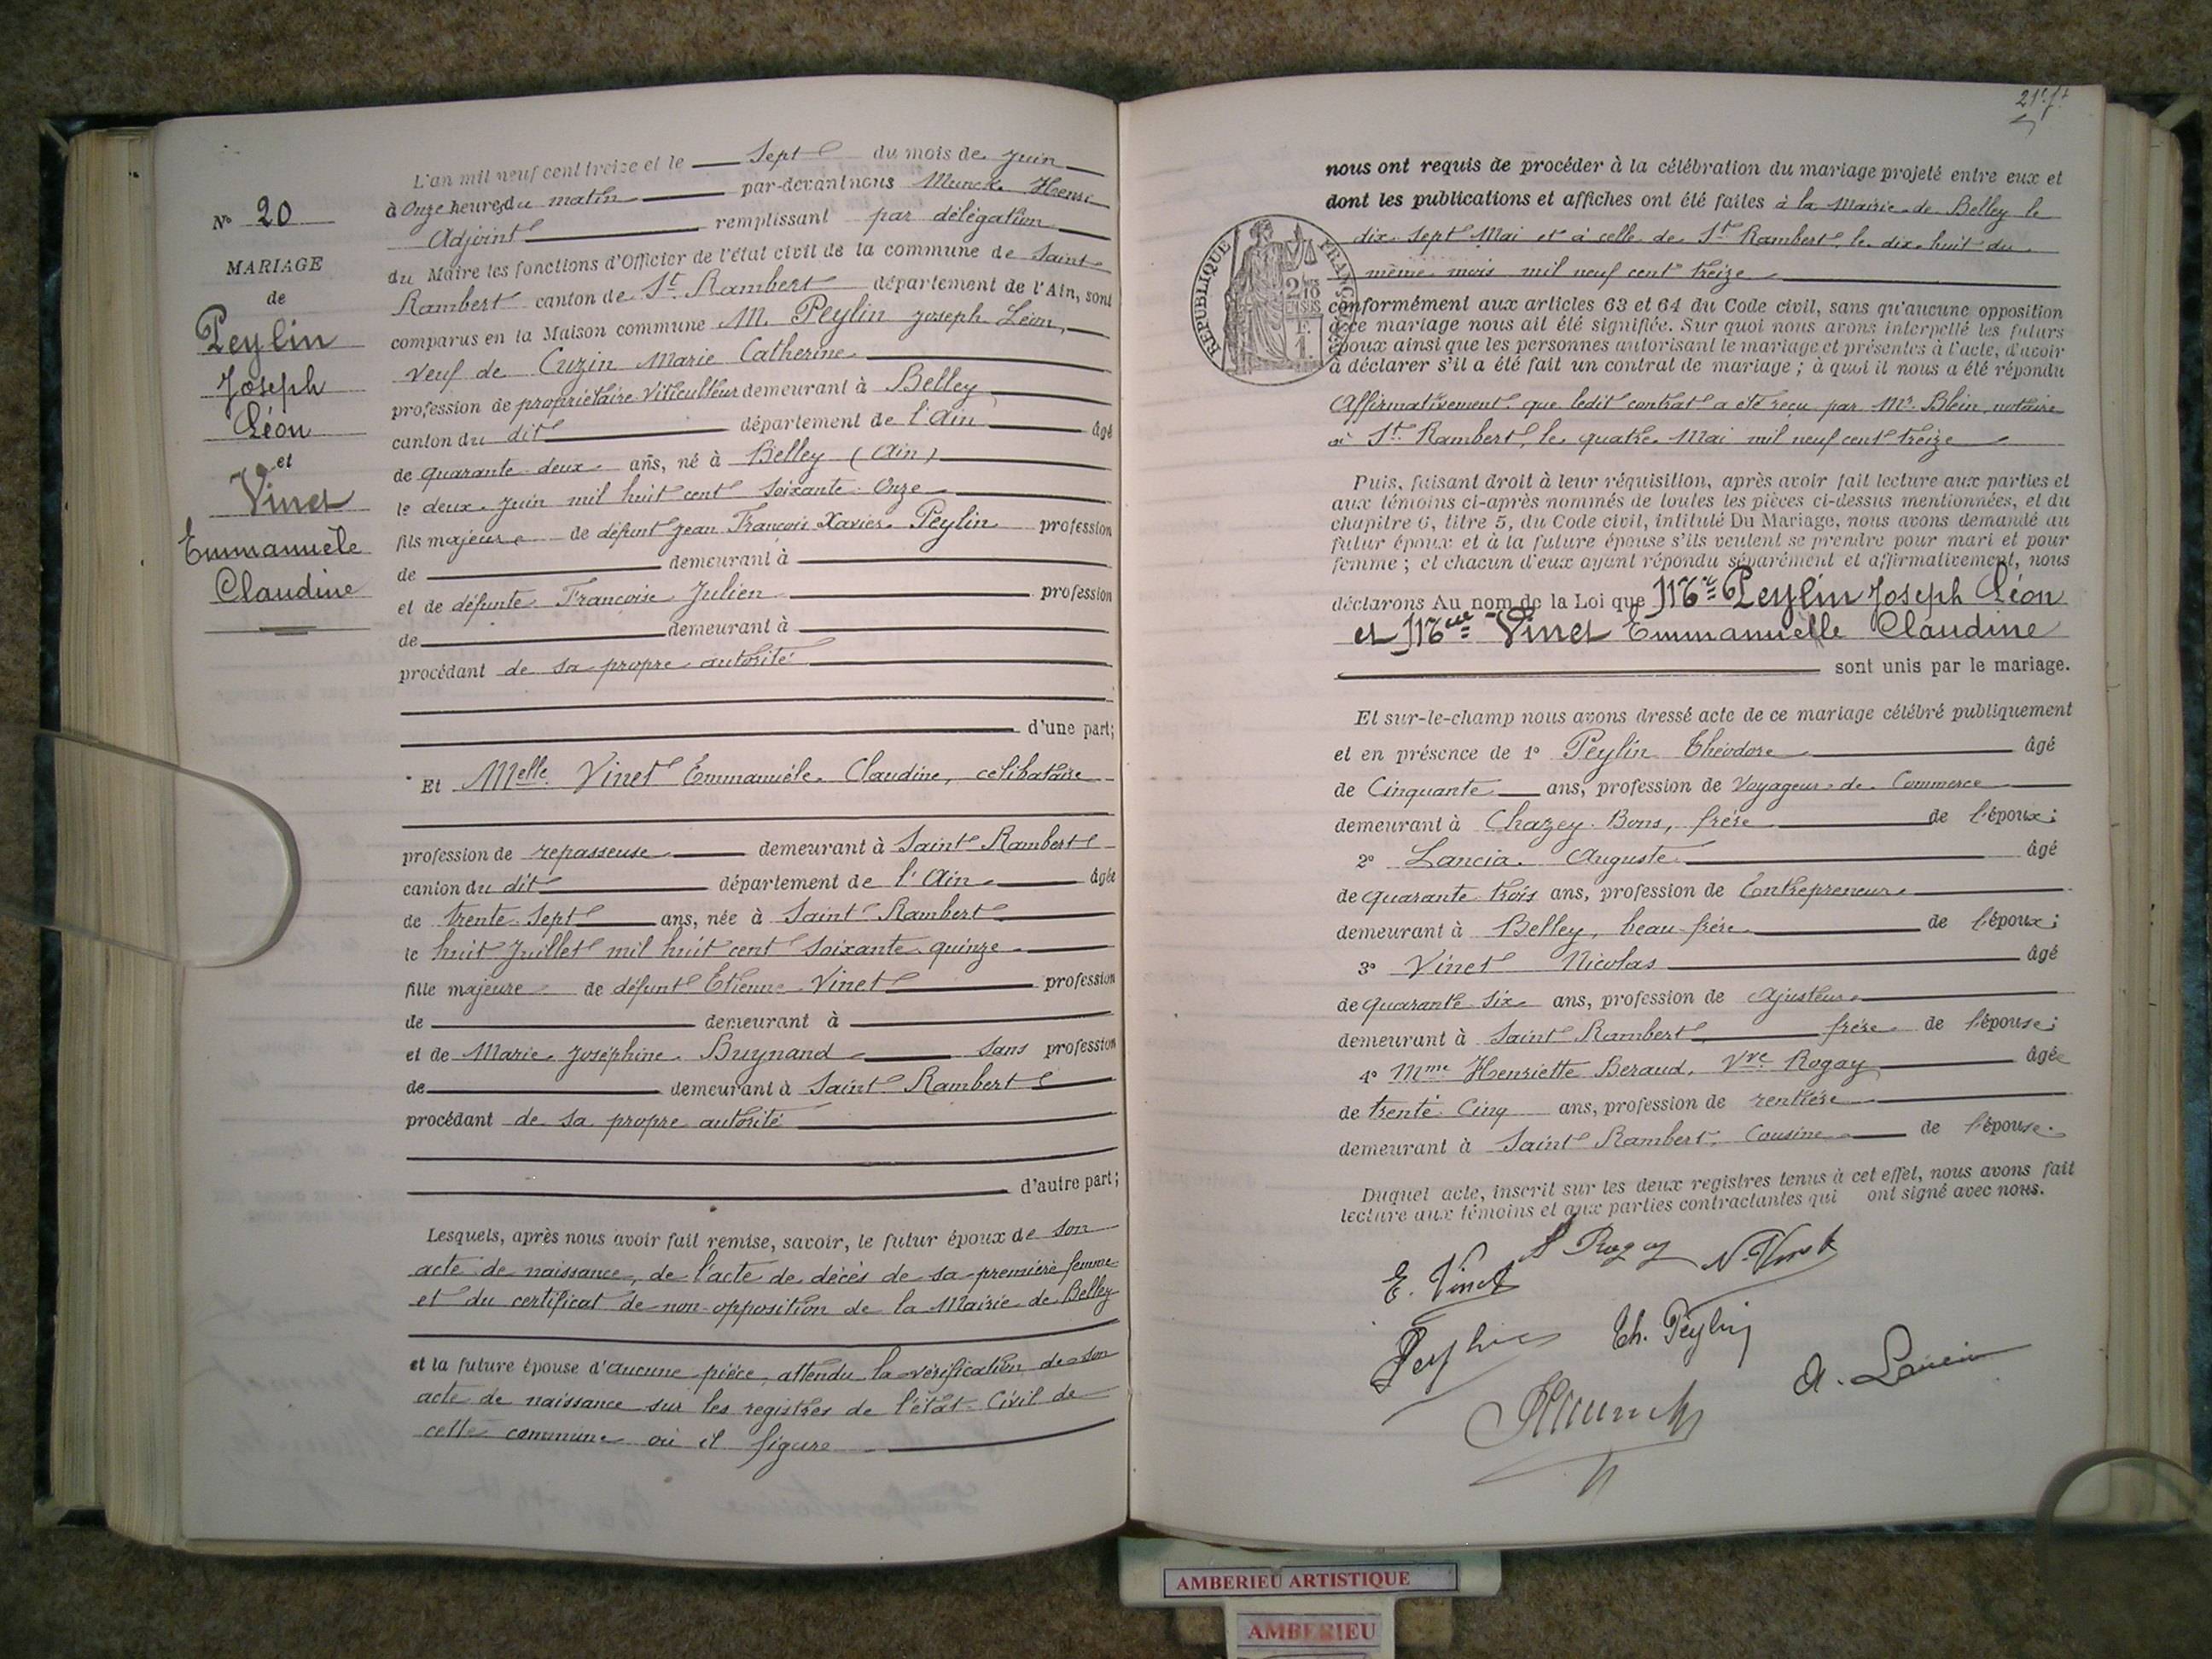 N° 20
MARIAGE
de
Peylin
Joseph
Léon
et
Vinet
Emmanuèle
Claudine
L'an mil neuf cent treize et le sept du mois de Juin
à Onze heures du matin par-devant nous Munck Henri
Adjoint remplissant par délégation
du Maire les fonctions d'Officier de l'état civil de la commune de Saint
Rambert canton de St Rambert département de l'Ain, sont
comparus en la Maison commune M. Peylin Joseph Léon,
veuf de Cuzin Marie Catherine
profession de propriétaire-Viticulteur demeurant à Belley
canton du dit département de l'Ain âgé
de quarante deux ans, né à Belley (Ain)
le deux Juin mil huit cent soixante onze
fils majeur de défunt Jean François Xavier Peylin profession
de demeurant à
et de défunte Francoise Julien profession
de demeurant à
procédant de sa propre autorité
d'une part;
Et Melle Vinet Emmanuéle Claudine, celibataire
profession de repasseuse demeurant à Saint Rambert
canton du dit département de l'Ain âgée
de trente sept ans, née à Saint Rambert
le huit Juillet mil huit cent soixante quinze
fille majeure de défunt Etienne Vinet profession
de demeurant à
et de Marie Joséphine Buynand sans profession
de demeurant à Saint Rambert
procédant de sa propre autorité
d'autre part;
Lesquels, après nous avoir fait remise, savoir, le futur époux de son
acte de naissance, de l'acte de décès de sa première femme
et du certificat de non-opposition de la Mairie de Belley
et la future épouse d'aucune pièce, attendu la vérification de son
acte de naissance sur les registres de l'état Civil de
cette commune où il figure
nous ont requis de procéder à la célébration du mariage projeté entre eux et
dont les publications et affiches ont été faites à la Mairie de Belley le
dix-sept Mai et à celle de St Rambert, le dix huit du
même mois mil neuf cent treize
REPUBLIQUE FRANÇAISE
conformément aux articles 63 et 64 du Code civil, sans qu'aucune opposition
à ce mariage nous ait été signifiée. Sur quoi nous avons interpellé les futurs
époux ainsi que les personnes autorisant le mariage et présentes à l'acte, d'avoir
à déclarer s'il a été fait un contrat de mariage; à quoi il nous a été répondu
Affirmativement que ledit contrat a été reçu par Me Blein, notaire
à St Rambert, le quatre Mai mil neuf cent treize
Puis, faisant droit à leur réquisition, après avoir fait lecture aux parties et
aux témoins ci-après nommés de toutes les pièces ci-dessus mentionnées, et du
chapitre 6, titre 5, du Code civil, intitulé Du Mariage, nous avons demandé au
futur époux et à la future épouse s'ils veulent se prendre pour mari et pour
femme; et chacun d'eux ayant répondu séparément et affirmativement, nous
déclarons Au nom de la Loi que Mr Peylin Joseph Léon
et Melle Vinet Emmanuèlle Claudine
sont unis par le mariage.
Et sur-le-champ nous avons dressé acte de ce mariage célébré publiquement
et en présence de 1° Peylin Théodore âgé
de Cinquante ans, profession de Voyageur de Commerce
demeurant à Chazey-Bons, frère de l'époux;
2° Lancia Auguste âgé
de quarante trois ans, profession de Entrepreneur
demeurant à Belley, beau-frère de l'époux;
3° Vinet Nicolas âgé
de quarante six ans, profession de Ajusteur
demeurant à Saint Rambert frère de l'épouse;
4° Mme Henriette Beraud, Vve Rogay âgée
de trente Cinq ans, profession de rentière
demeurant à Saint Rambert, Cousine de l'épouse.
Duquel acte, inscrit sur les deux registres tenus à cet effet, nous avons fait
lecture aux témoins et aux parties contractantes qui ont signé avec nous.
E. Vinet Rogay N. Vinet
Peylin Th. Peylin
A. Lancia
HMunck
AMBERIEU ARTISTIQUE
AMBERIEU